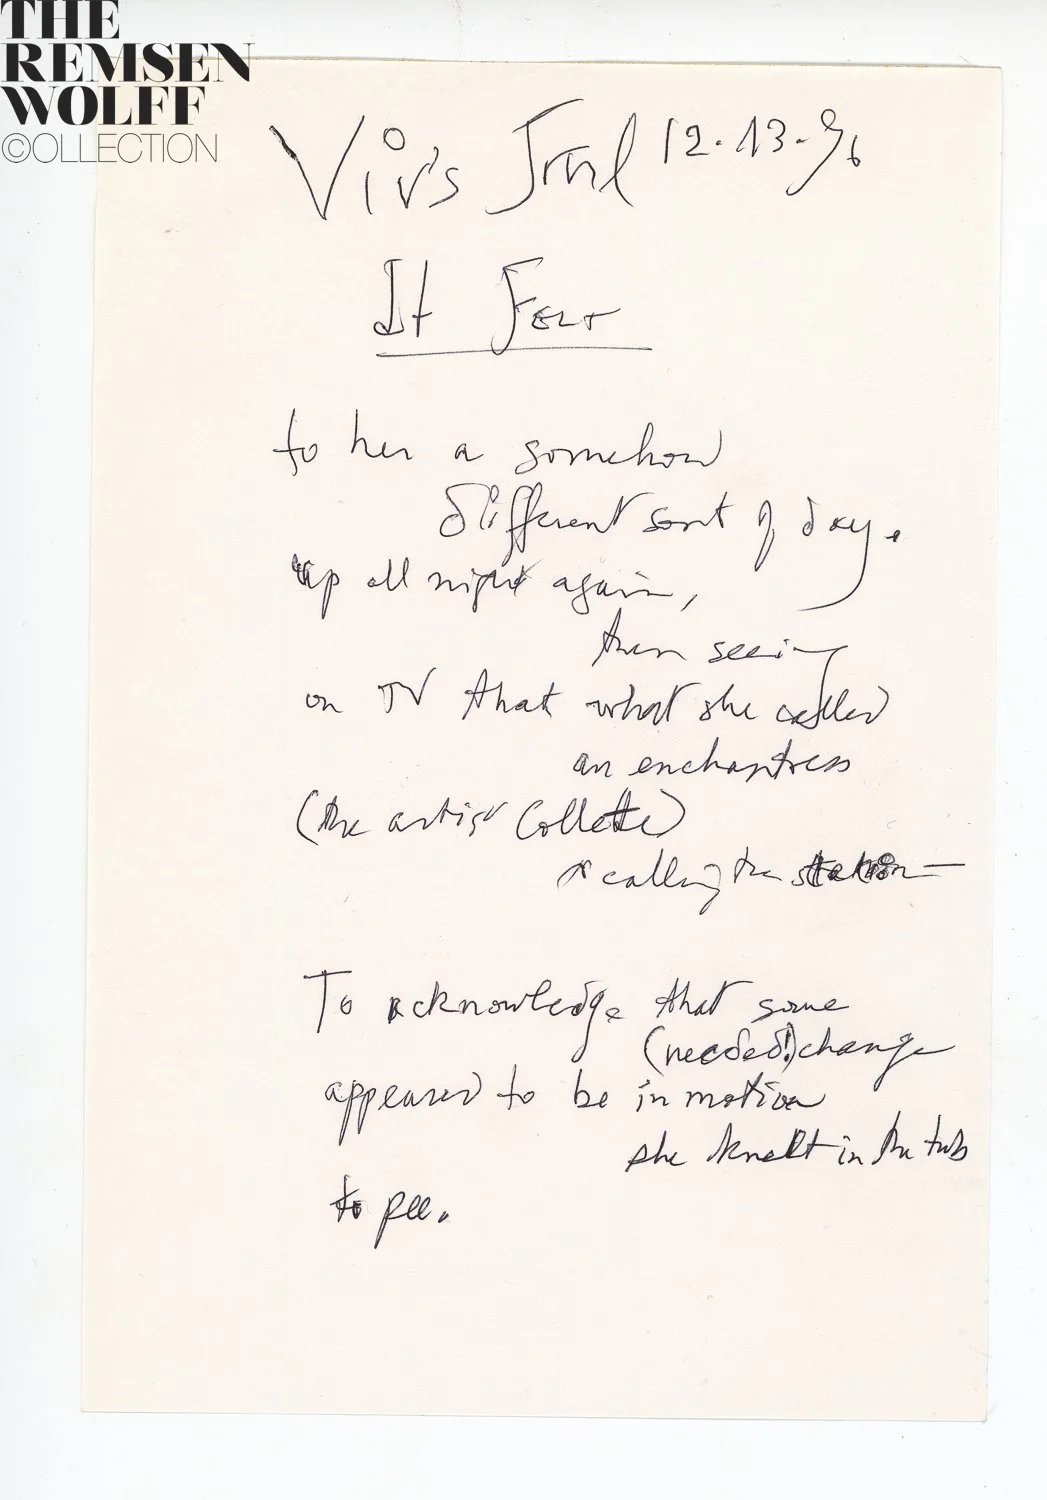 THE
REMSEN
WOLFF
©OLLECTION
Viv's Jrnl 12.13.96
It Felt
to her a somehow
different sort of day.
up all night again,
then seeing
on TV that what she called
an enchantress
(the artist Collette)
calling the station—
To acknowledge that some
(needed!) change
appeared to be in motion
she knelt in the tub
to pee.